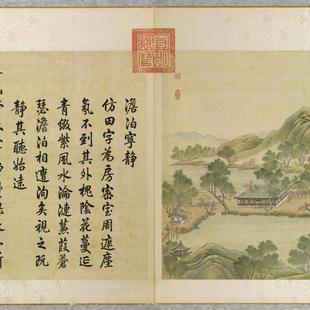 澹泊寧靜
仿田字為房密室周遮塵
氛不到其外槐陰花蔓延
青綴紫風水淪漣蒹葭蒼
瑟澹泊相遭洵矣視之既
靜其聽始遠